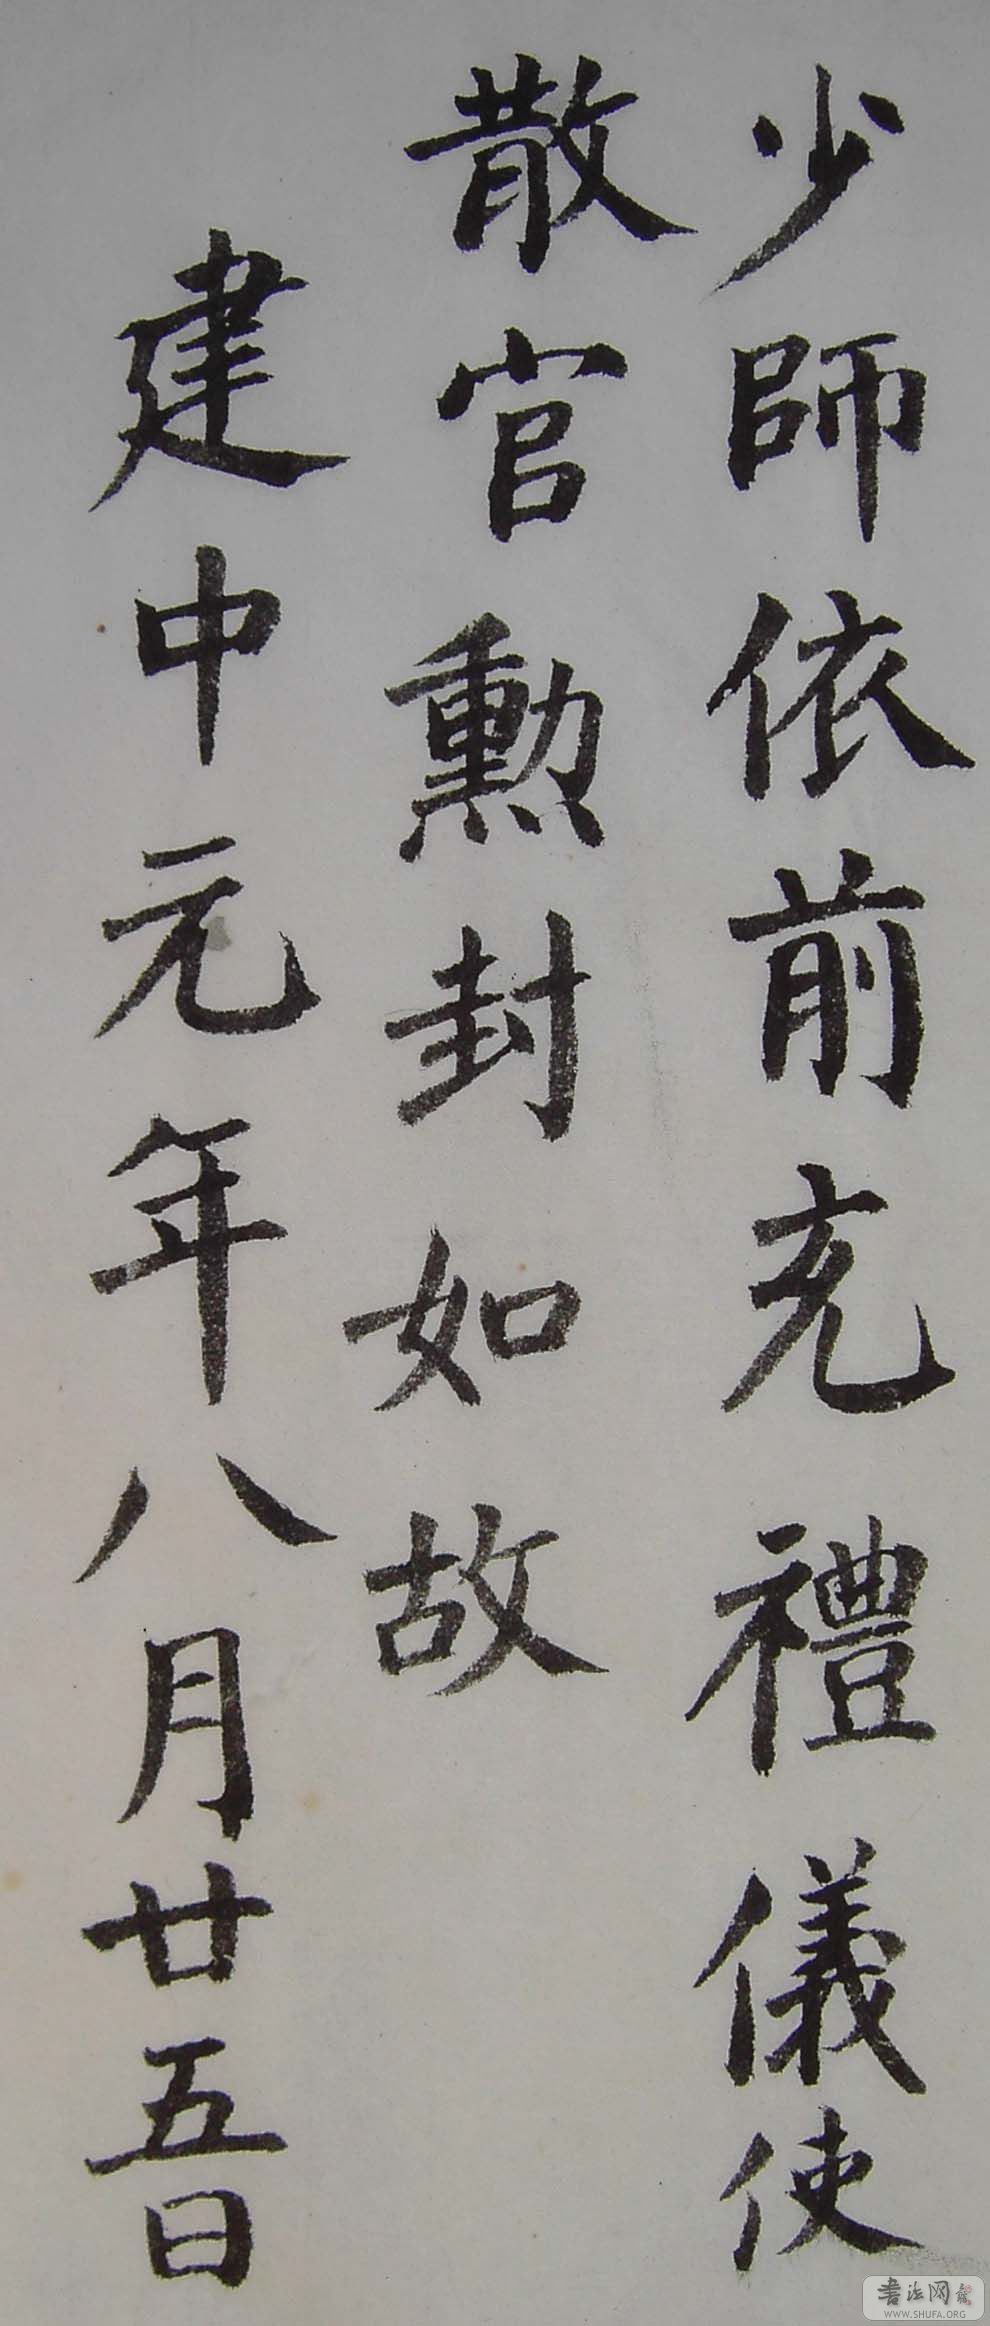 少師依前充禮儀使
散官勳封如故
建中元年八月廿五日
書法网
WWW.SHUFA.ORG